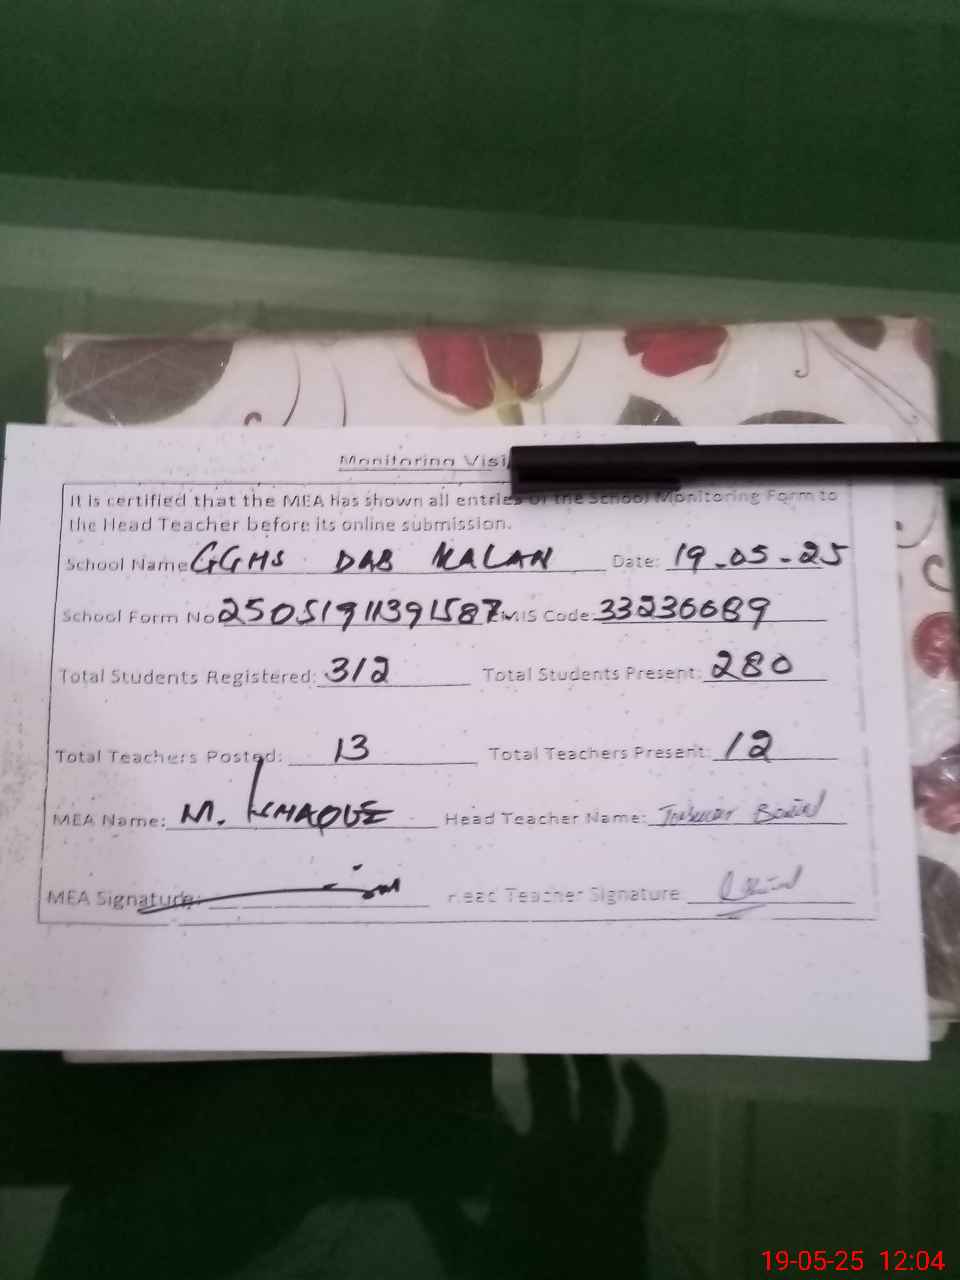 Monitoring Visi
It is certified that the MEA has shown all entries of the School Monitoring Form to
the Head Teacher before its online submission.
School Name GGHS DAB KALAN Date: 19-05-25
School Form No 25051911391587 EMIS Code: 33236689
Total Students Registered: 312 Total Students Present: 280
Total Teachers Posted: 13 Total Teachers Present: 12
MEA Name: M. KHAQUE Head Teacher Name:
MEA Signature: Head Teacher Signature:
19-05-25 12:04